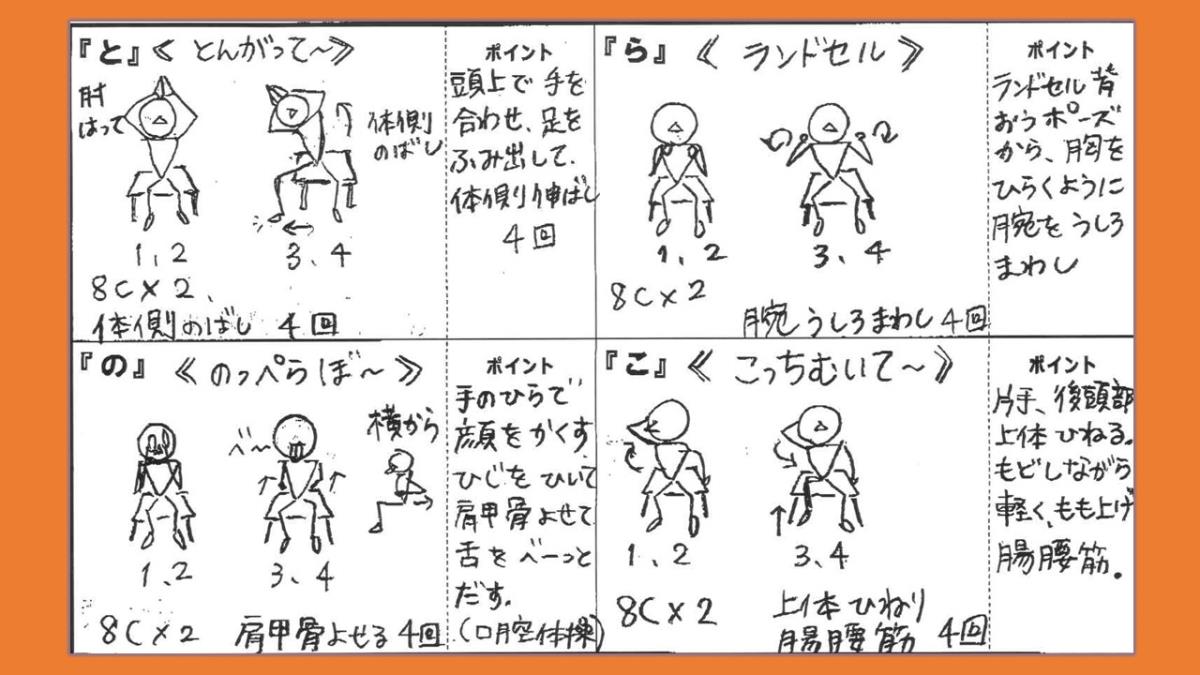 『と』《とんがって～》
肘
はって
体側
のばし
1、2
3、4
8C×2、
体側のばし 4回
ポイント
頭上で手を
合わせ、足を
ふみ出して、
体側伸ばし
4回
『ら』《ランドセル》
1、2
3、4
8C×2
腕うしろまわし4回
ポイント
ランドセル背
おうポーズ
から、胸を
ひらくように
腕をうしろ
まわし
『の』《のっぺらぼ～》
べ～
横から
1、2
3、4
8C×2 肩甲骨よせる4回
ポイント
手のひらで
顔をかくす
ひじをひいて
肩甲骨よせて
舌をべーっと
だす。
(口腔体操)
『こ』《こっちむいて～》
1、2
3、4
8C×2
上体ひねり
腸腰筋 4回
ポイント
片手、後頭部
上体ひねる。
もどしながら
軽く、もも上げ
腸腰筋。